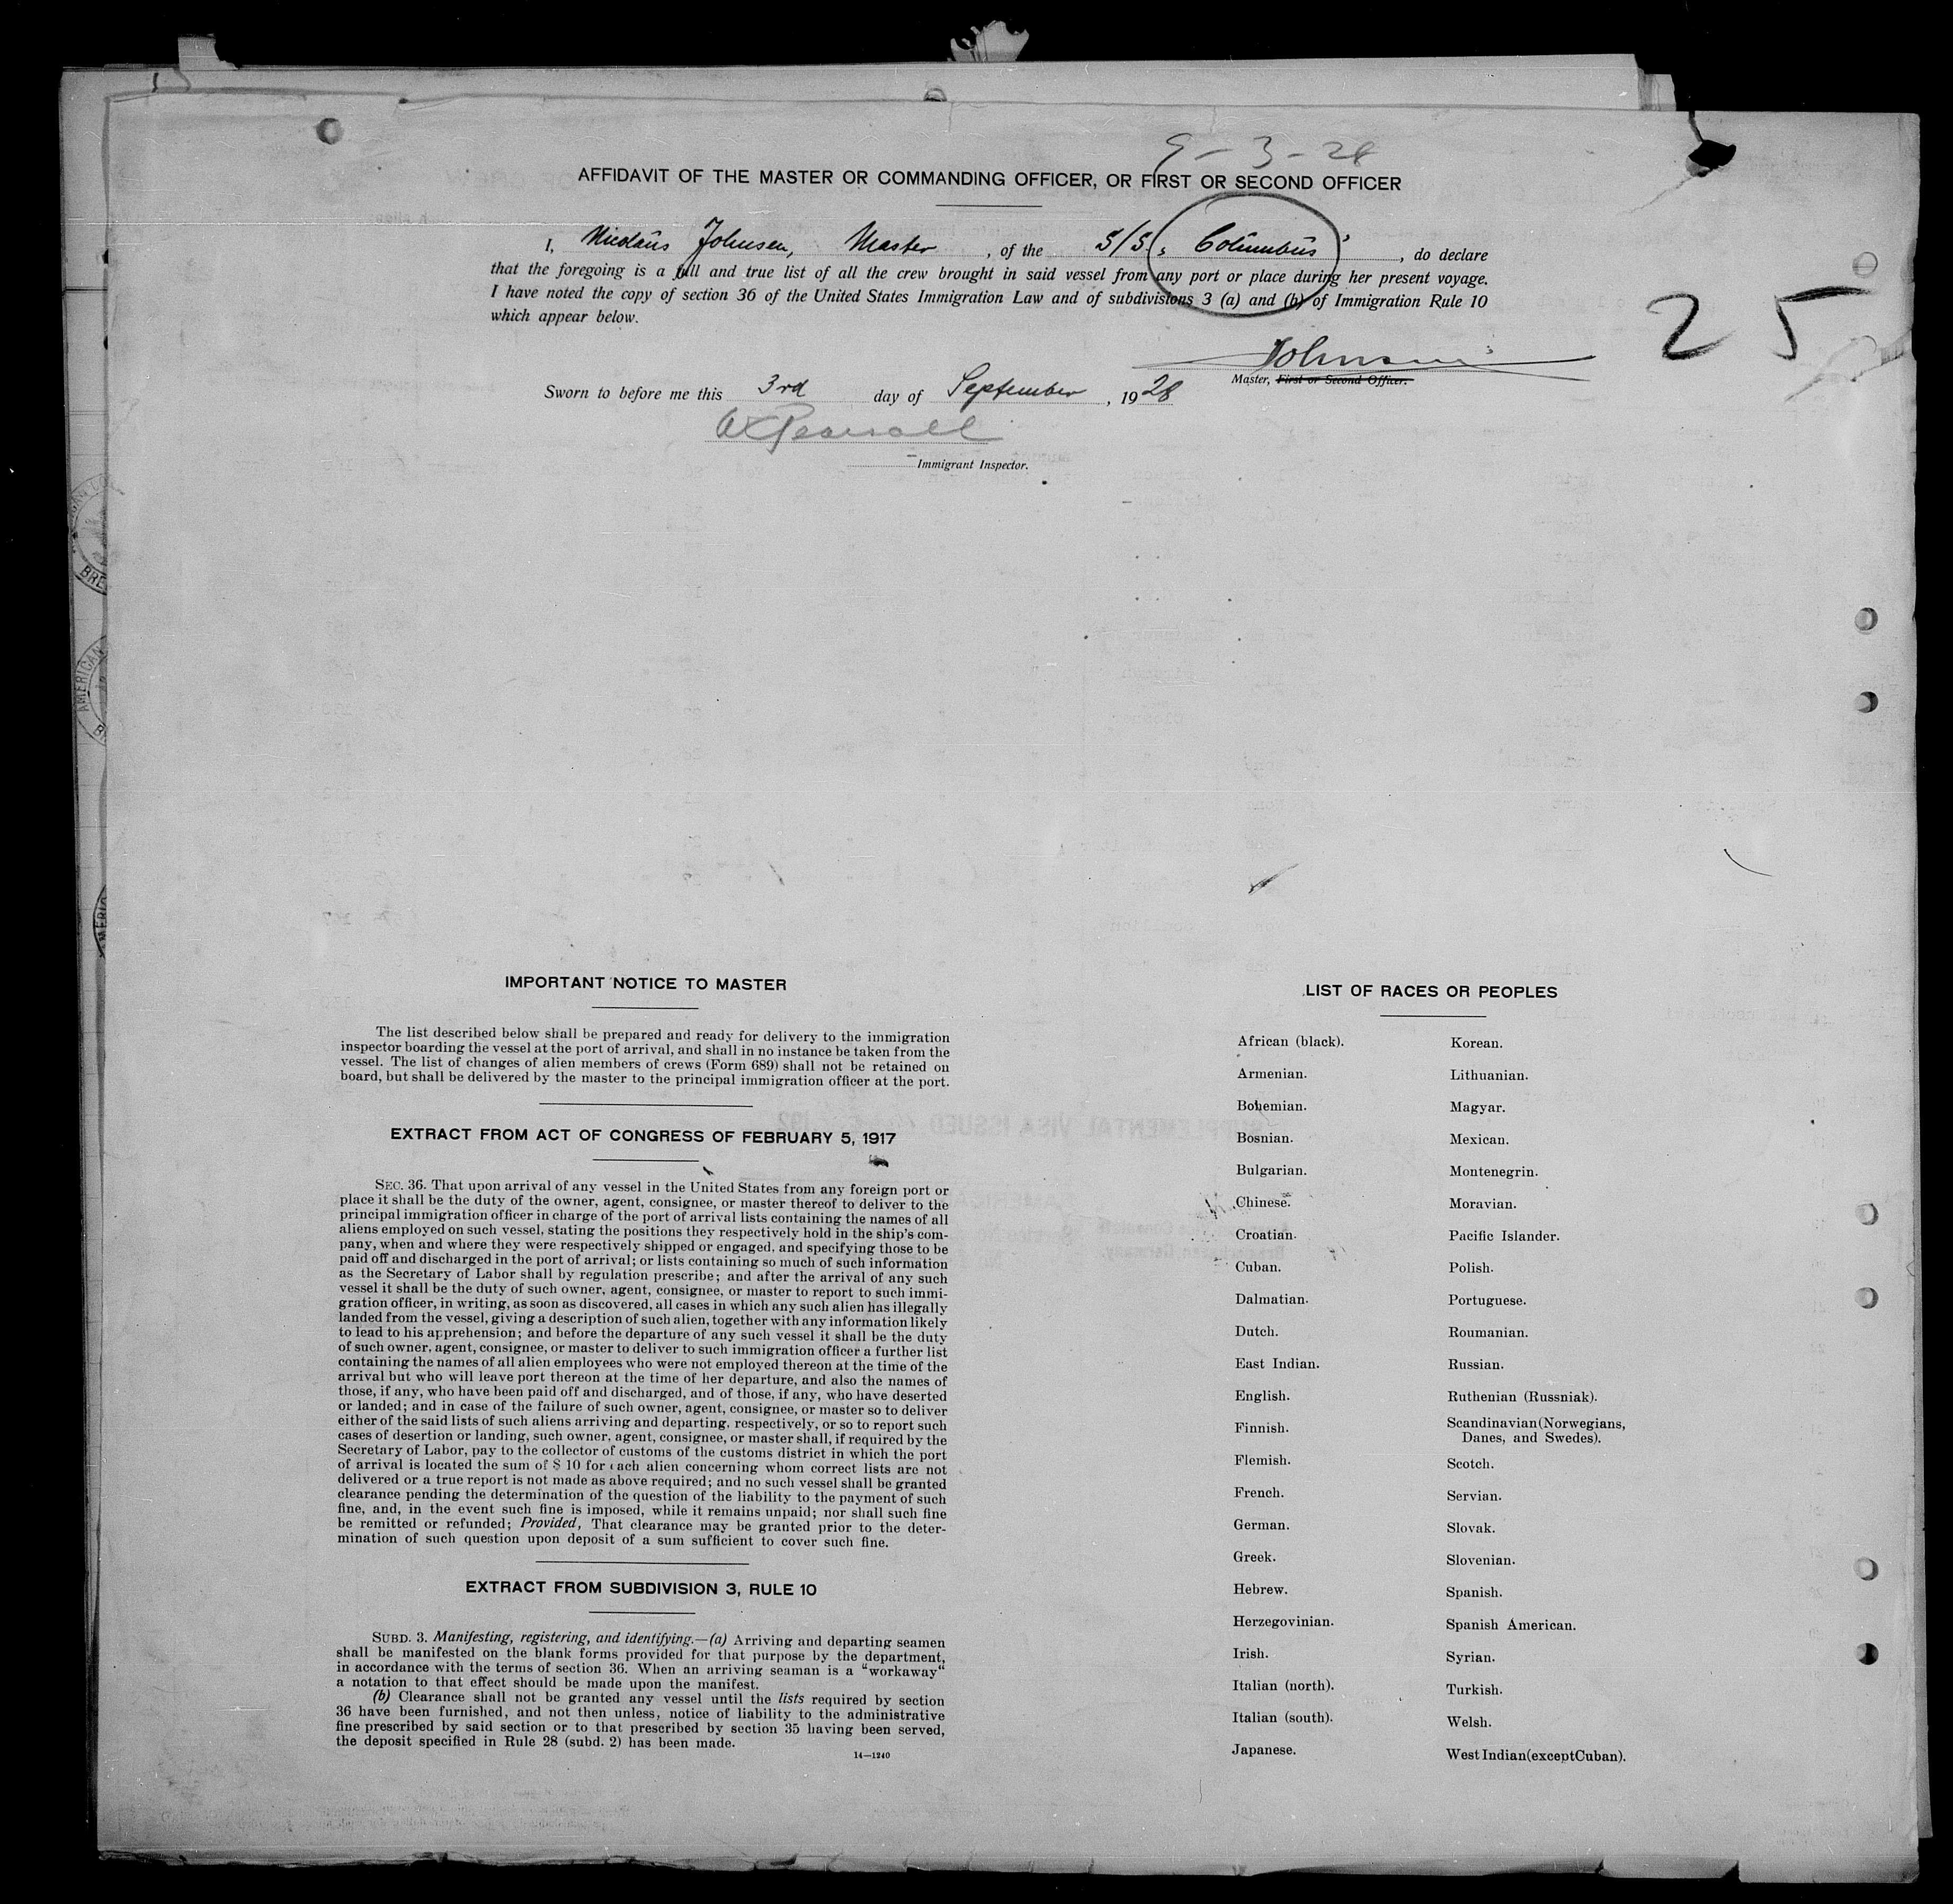 9-3-28
AFFIDAVIT OF THE MASTER OR COMMANDING OFFICER, OR FIRST OR SECOND OFFICER
I, Nicolaus Johnsen, Master, of the S/S. „Columbus“, do declare
that the foregoing is a full and true list of all the crew brought in said vessel from any port or place during her present voyage.
I have noted the copy of section 36 of the United States Immigration Law and of subdivisions 3 (a) and (b) of Immigration Rule 10
which appear below.
25
Johnsen
Master, First or Second Officer.
Sworn to before me this 3rd day of September, 1928
Immigrant Inspector.
IMPORTANT NOTICE TO MASTER
The list described below shall be prepared and ready for delivery to the immigration
inspector boarding the vessel at the port of arrival, and shall in no instance be taken from the
vessel. The list of changes of alien members of crews (Form 689) shall not be retained on
board, but shall be delivered by the master to the principal immigration officer at the port.
EXTRACT FROM ACT OF CONGRESS OF FEBRUARY 5, 1917
SEC. 36. That upon arrival of any vessel in the United States from any foreign port or
place it shall be the duty of the owner, agent, consignee, or master thereof to deliver to the
principal immigration officer in charge of the port of arrival lists containing the names of all
aliens employed on such vessel, stating the positions they respectively hold in the ship's com-
pany, when and where they were respectively shipped or engaged, and specifying those to be
paid off and discharged in the port of arrival; or lists containing so much of such information
as the Secretary of Labor shall by regulation prescribe; and after the arrival of any such
vessel it shall be the duty of such owner, agent, consignee, or master to report to such immi-
gration officer, in writing, as soon as discovered, all cases in which any such alien has illegally
landed from the vessel, giving a description of such alien, together with any information likely
to lead to his apprehension; and before the departure of any such vessel it shall be the duty
of such owner, agent, consignee, or master to deliver to such immigration officer a further list
containing the names of all alien employees who were not employed thereon at the time of the
arrival but who will leave port thereon at the time of her departure, and also the names of
those, if any, who have been paid off and discharged, and of those, if any, who have deserted
or landed; and in case of the failure of such owner, agent, consignee, or master so to deliver
either of the said lists of such aliens arriving and departing, respectively, or so to report such
cases of desertion or landing, such owner, agent, consignee, or master shall, if required by the
Secretary of Labor, pay to the collector of customs of the customs district in which the port
of arrival is located the sum of $ 10 for each alien concerning whom correct lists are not
delivered or a true report is not made as above required; and no such vessel shall be granted
clearance pending the determination of the question of the liability to the payment of such
fine, and, in the event such fine is imposed, while it remains unpaid; nor shall such fine
be remitted or refunded; Provided, That clearance may be granted prior to the deter-
mination of such question upon deposit of a sum sufficient to cover such fine.
EXTRACT FROM SUBDIVISION 3, RULE 10
SUBD. 3. Manifesting, registering, and identifying.—(a) Arriving and departing seamen
shall be manifested on the blank forms provided for that purpose by the department,
in accordance with the terms of section 36. When an arriving seaman is a “workaway“
a notation to that effect should be made upon the manifest.
(b) Clearance shall not be granted any vessel until the lists required by section
36 have been furnished, and not then unless, notice of liability to the administrative
fine prescribed by said section or to that prescribed by section 35 having been served,
the deposit specified in Rule 28 (subd. 2) has been made.
14—1240
LIST OF RACES OR PEOPLES
African (black).
Armenian.
Bohemian.
Bosnian.
Bulgarian.
Chinese.
Croatian.
Cuban.
Dalmatian.
Dutch.
East Indian.
English.
Finnish.
Flemish.
French.
German.
Greek.
Hebrew.
Herzegovinian.
Irish.
Italian (north).
Italian (south).
Japanese.
Korean.
Lithuanian.
Magyar.
Mexican.
Montenegrin.
Moravian.
Pacific Islander.
Polish.
Portuguese.
Roumanian.
Russian.
Ruthenian (Russniak).
Scandinavian (Norwegians,
Danes, and Swedes).
Scotch.
Servian.
Slovak.
Slovenian.
Spanish.
Spanish American.
Syrian.
Turkish.
Welsh.
West Indian (except Cuban).